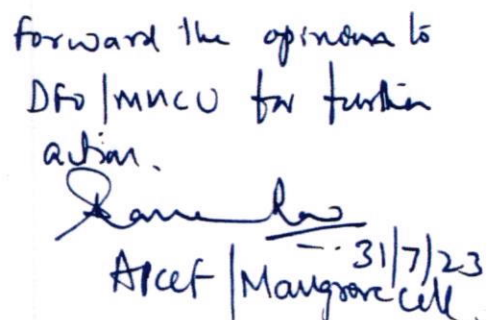 Forward the opinions to
DFO/MMCU for further
action.
31/7/23
APCCF/Mangrove cell